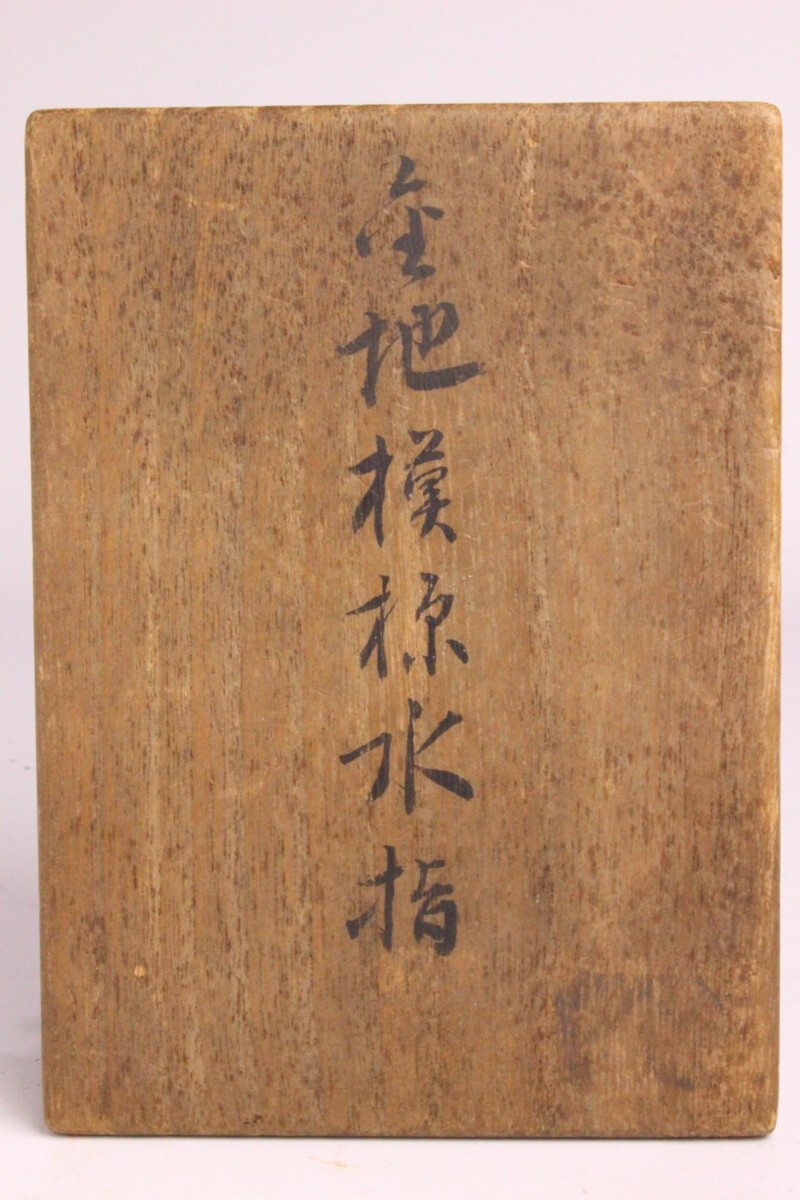 金地模様水指